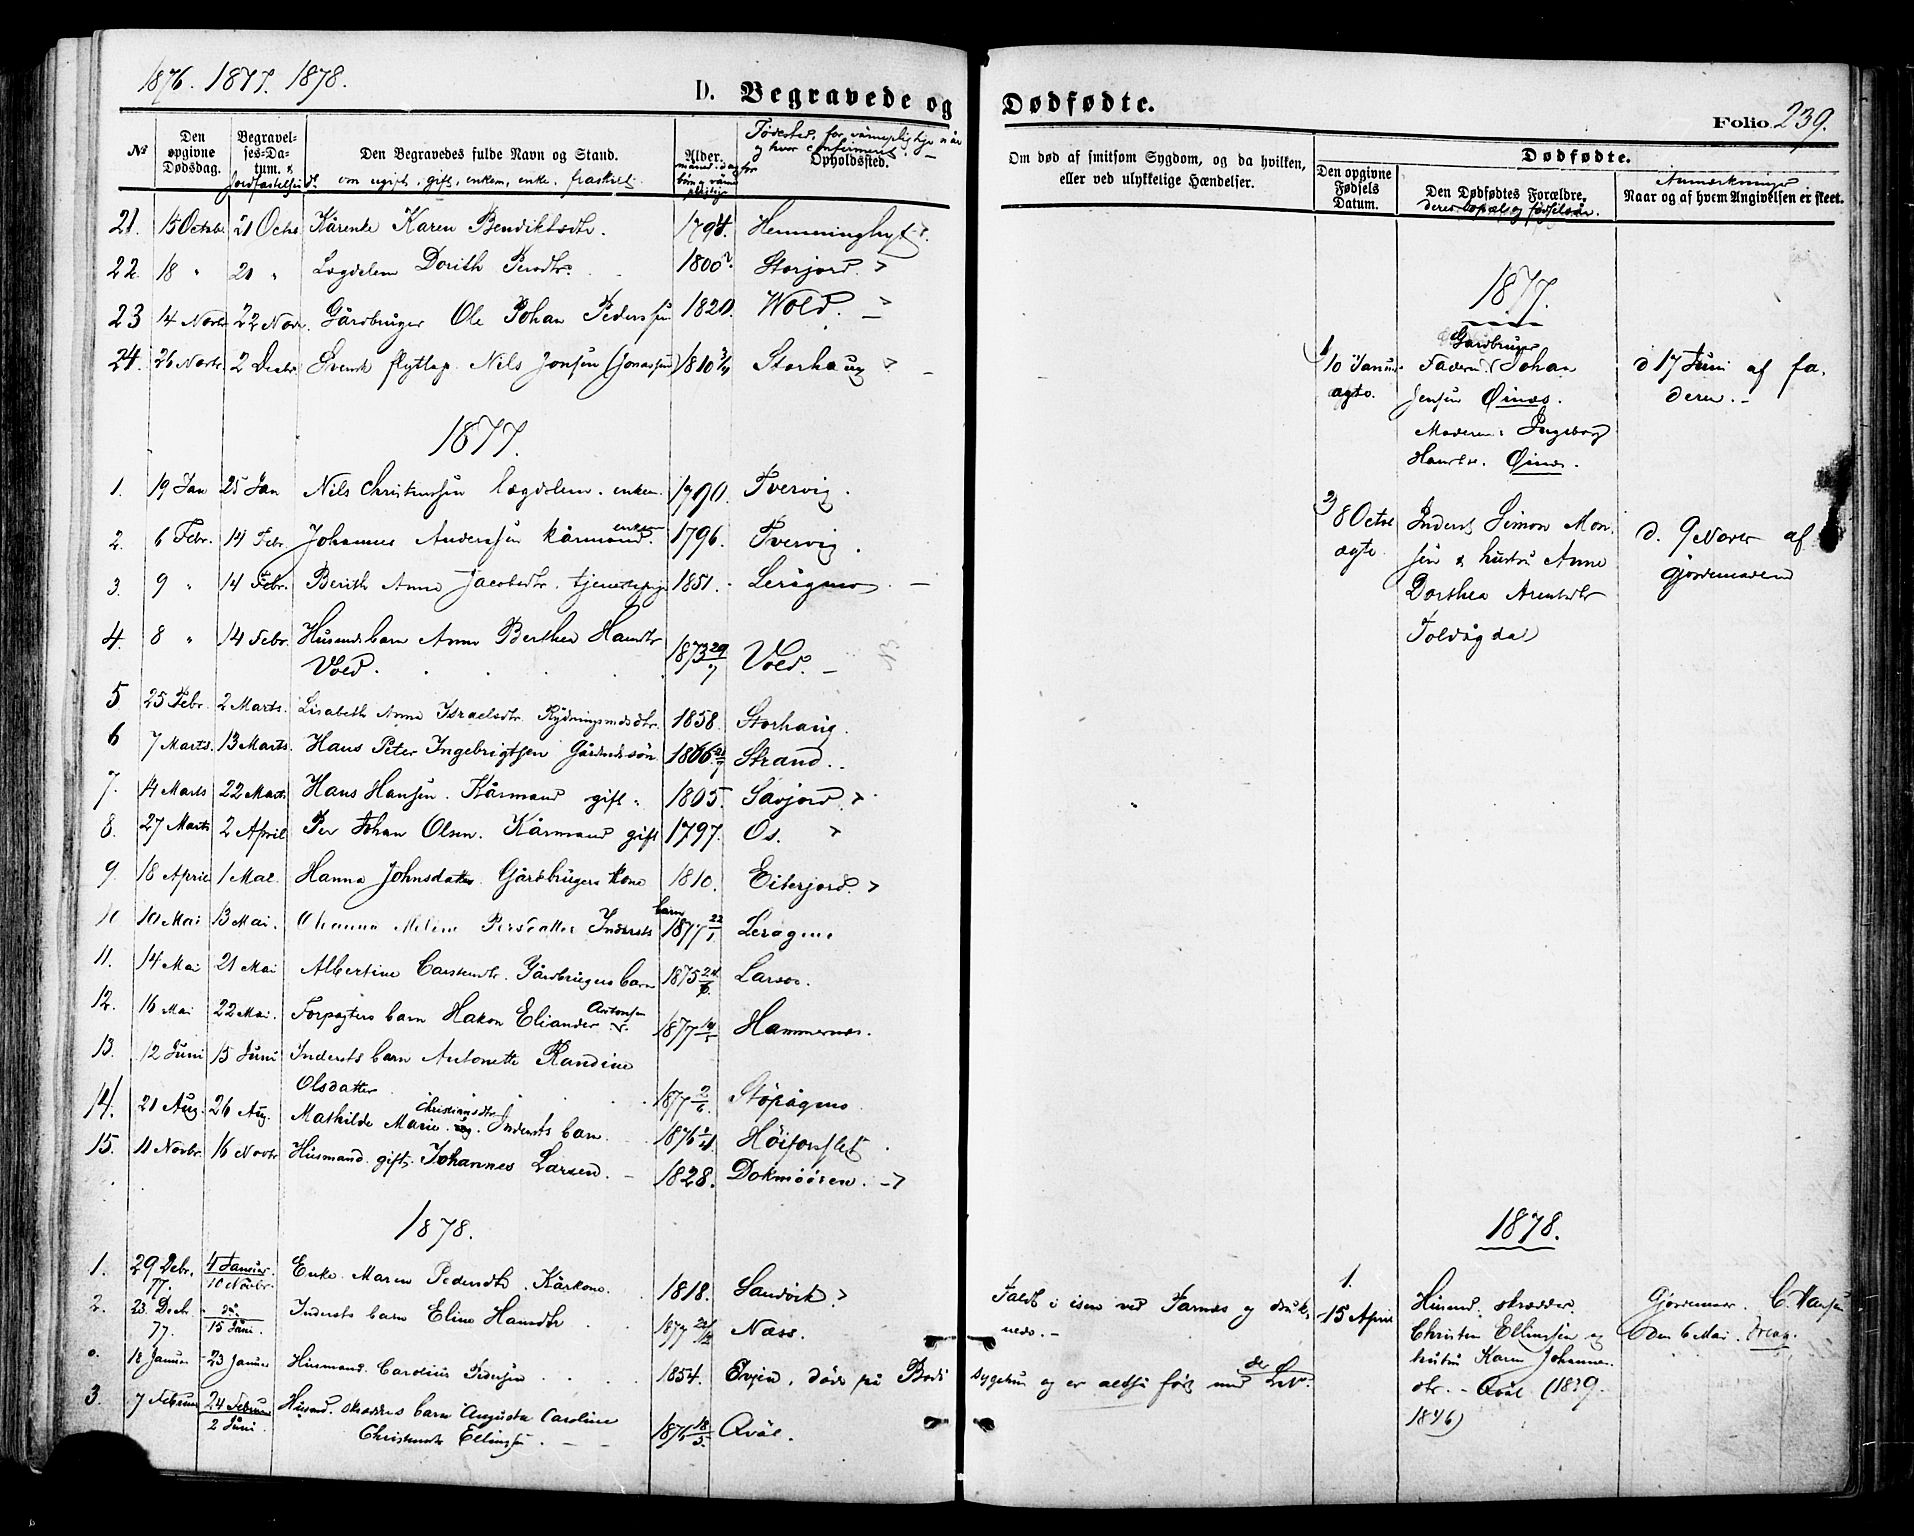 1876. 1877. 1878.
D. Begravede og Dødfødte.
Folio 239.
No
Den opgivne Dødsdag.
Begravelses-Datum. &
Den Begravedes fulde Navn og Stand.
om ugift, gift, enkem, enke, fraskilt.
Alder.
Fødested, for værnepligtige når
og hvor confirmeret.
Opholdssted.
Om død af smitsom Sygdom, og da hvilken,
eller ved ulykkelige Hændelser.
Dødfødte.
Den opgivne Fødsels Datum.
Den Dødfødtes Forældre,
deres bopæl og fødselsår.
Anmærkninger
Naar og af hvem Angivelsen er skeet.
21. 15 Octbr 21 Octo Kårenke Karen Bendiktsdtr. 1794. Hemminghyt
22 18 " 21 " Lægdslem Dorith Persdtr. 1800 Storjord.
23 14 Novbr 22 Novr. Gårdbruger Ole Johan Pederssen 1820. Wold.
24. 26 Novbr 2 Decbr Svensk flytlap Nils Jonsen (Jonassen) 1810 Storhaug
1877.
1. 19 Jan 25 Jan Nils Christenssen lægdslem. enkem. 1790. Tvervig.
2. 6 Febr. 14 Febr. Johannes Anderssen kårmand. enkem 1796. Tvervig.
3. 9 " 14 Febr. Berith Anna Jacobsdtr. tjenestepige 1851. Leragmo
4. 8 " 14 Febr. Husmdsbarn Anne Berthea Hansdtr
Vold. 1873 29/7 Vold.
5 25 Febr. 2 Marts. Lisabeth Anna Israelsdtr Rydningsmdsdtr. 1858. Storhaug.
6 7 Marts. 13 Marts. Hans Peter Ingebrigtsen Gårdmdssön 1866 Strand.
7. 14 Marts 22 Marts Hans Hansen. Kårmand gift. 1805. Savjord.
8. 27 Marts 2 April Per Johan Olsen. Kårmand gift 1797. Os.
9. 18 April 1 Mai. Hanna Johnsdatter. Gårdbrugers kone 1810. Eiterjord.
10 10 Mai 13 Mai. Ohanna Meline Persdatter Indersts barn 1877 22/1 Leragmo
11. 14 Mai 21 Mai Albertine Carstensdtr. Gårdbrugers barn 1875 Larsos.
12. 16 Mai 22 Mai. Forpagters barn Hakon Eliander Antonsen 1877 Hammernæs.
13. 12 Juni 15 Juni Inderstsbarn Antonette Randine
Olsdatter 1877 2/6 Støvågmo.
14. 21 Aug. 26 Aug. Mathilde Marie Christiansdtr Inderstsbarn. 1876 Höiforslet.
15. 11 Novbr. 16 Novbr Husmand gift Johannes Larsen. 1828. Dokmöören.
1878.
1. 29 Debr. 77. 4 Januar 10 Novbr. Enke Maren Pedersdtr. Kårkone. 1818. Sandvik.
2. 23 Decb. 77. do 15 Juni. Inderstsbarn Eline Hansdtr 1877 Næss. Faldt i isen ved Farnæs og druk-
nede.
0. 18 Januar 23 Januar Husmand. Carolius Pedersen 1854. Evjen, døde på Bodø Sygehus og er altså før med der.
3. 7 Februar 24 Februar 2 Juni. Husmd. skræders barn Augusta Caroline
Christensdtr Ellingsen. 1876 18/5. Qväl.
1877.
1) 10 Januar ægte. Gårdbruger
Faderen: Johan
Jensen Øinæs.
Moderen: Ingeborg
Hansdtr. Øinæs.
d 17 Juni af fa-
deren.
2) 8 Octbr ægte. Inderst Simon Mon-
sen & hustru Anne
Dorthea Arentsdtr
Toldågdal
d. 9 Novbr af
gjordemoderen
1878.
1. 15 April Husmd. skrædder.
Christen Ellingsen og
hustru Karen Johannes-
dtr. - Qväl (1839.
1846)
Gjordemor. C. Hansen
den 6 Mai.